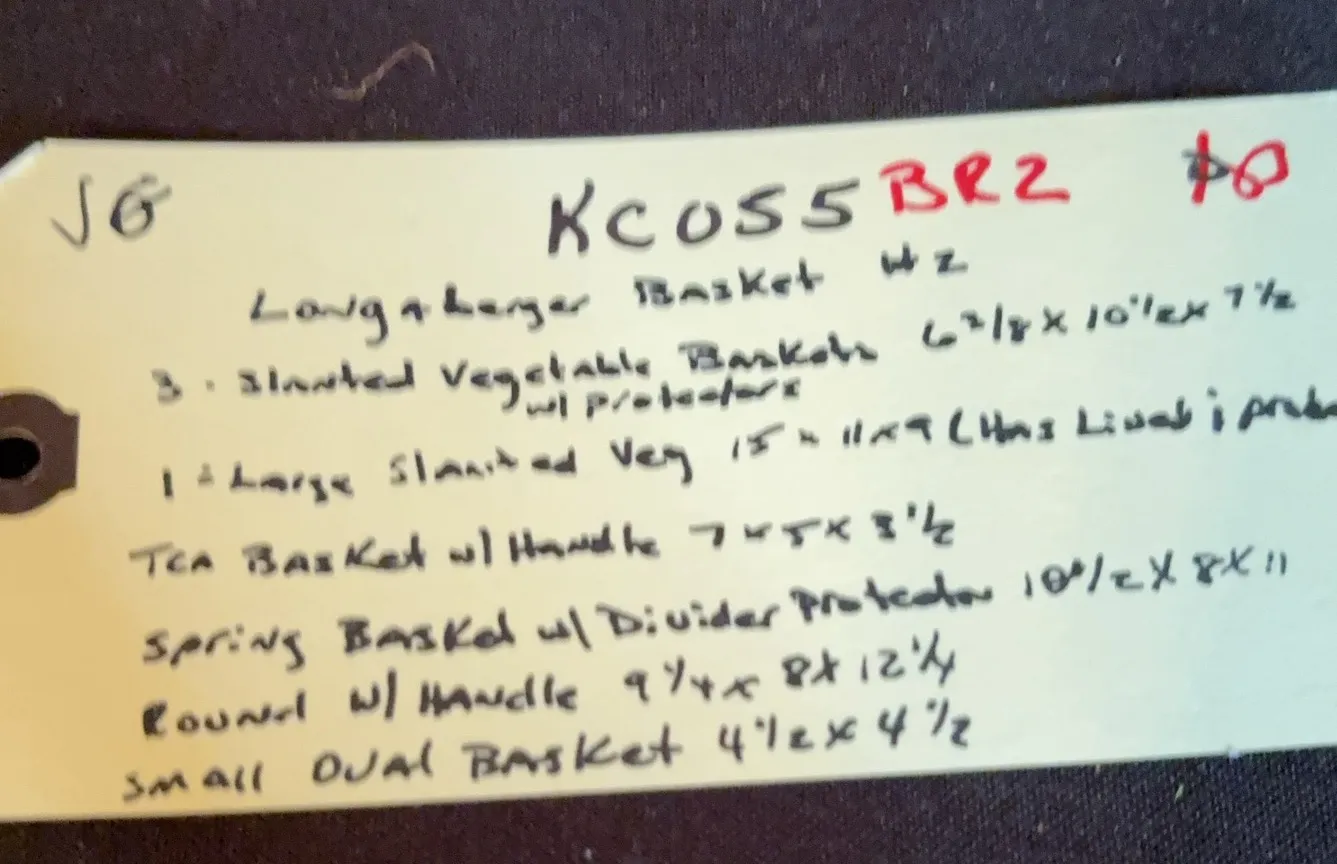 JG KC055 BR2
Longaberger Basket #2
3 - Slanted Vegetable Baskets 6 3/8 x 10 1/2 x 7 1/2
w/ protectors
1 - Large Slanted Veg 15 x 11 x 9 (Has Liner &
Tea Basket w/ Handle 7 x 5 x 3 1/2
Spring Basket w/ Divider Protector 10 1/2 x 8 x 11
Round w/ Handle 9 1/4 x 8 x 12 1/4
Small Oval Basket 4 1/2 x 4 1/2